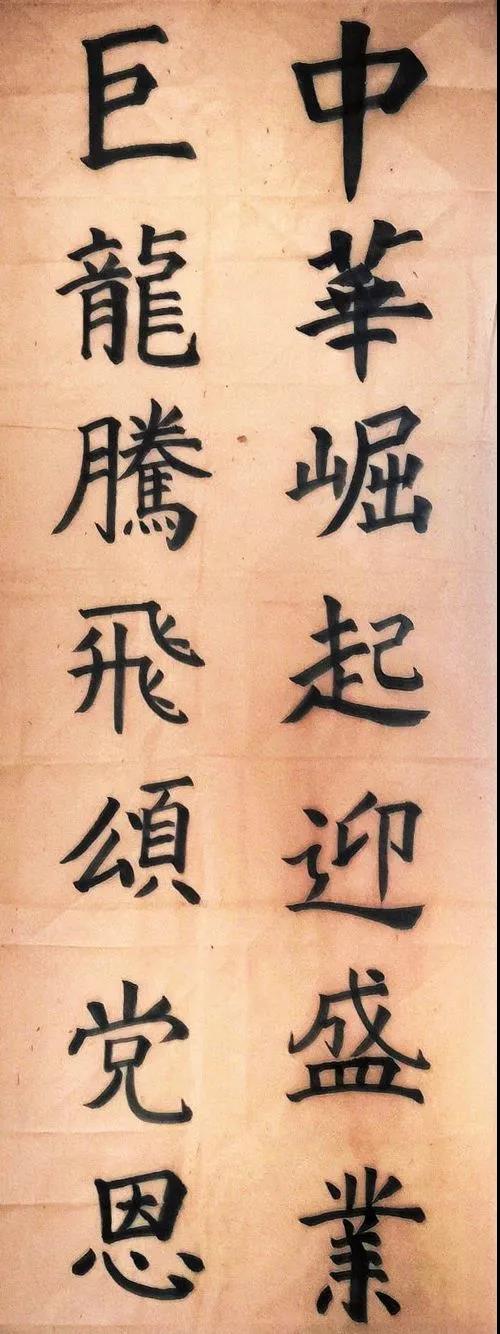 中華崛起迎盛業
巨龍騰飛頌党恩